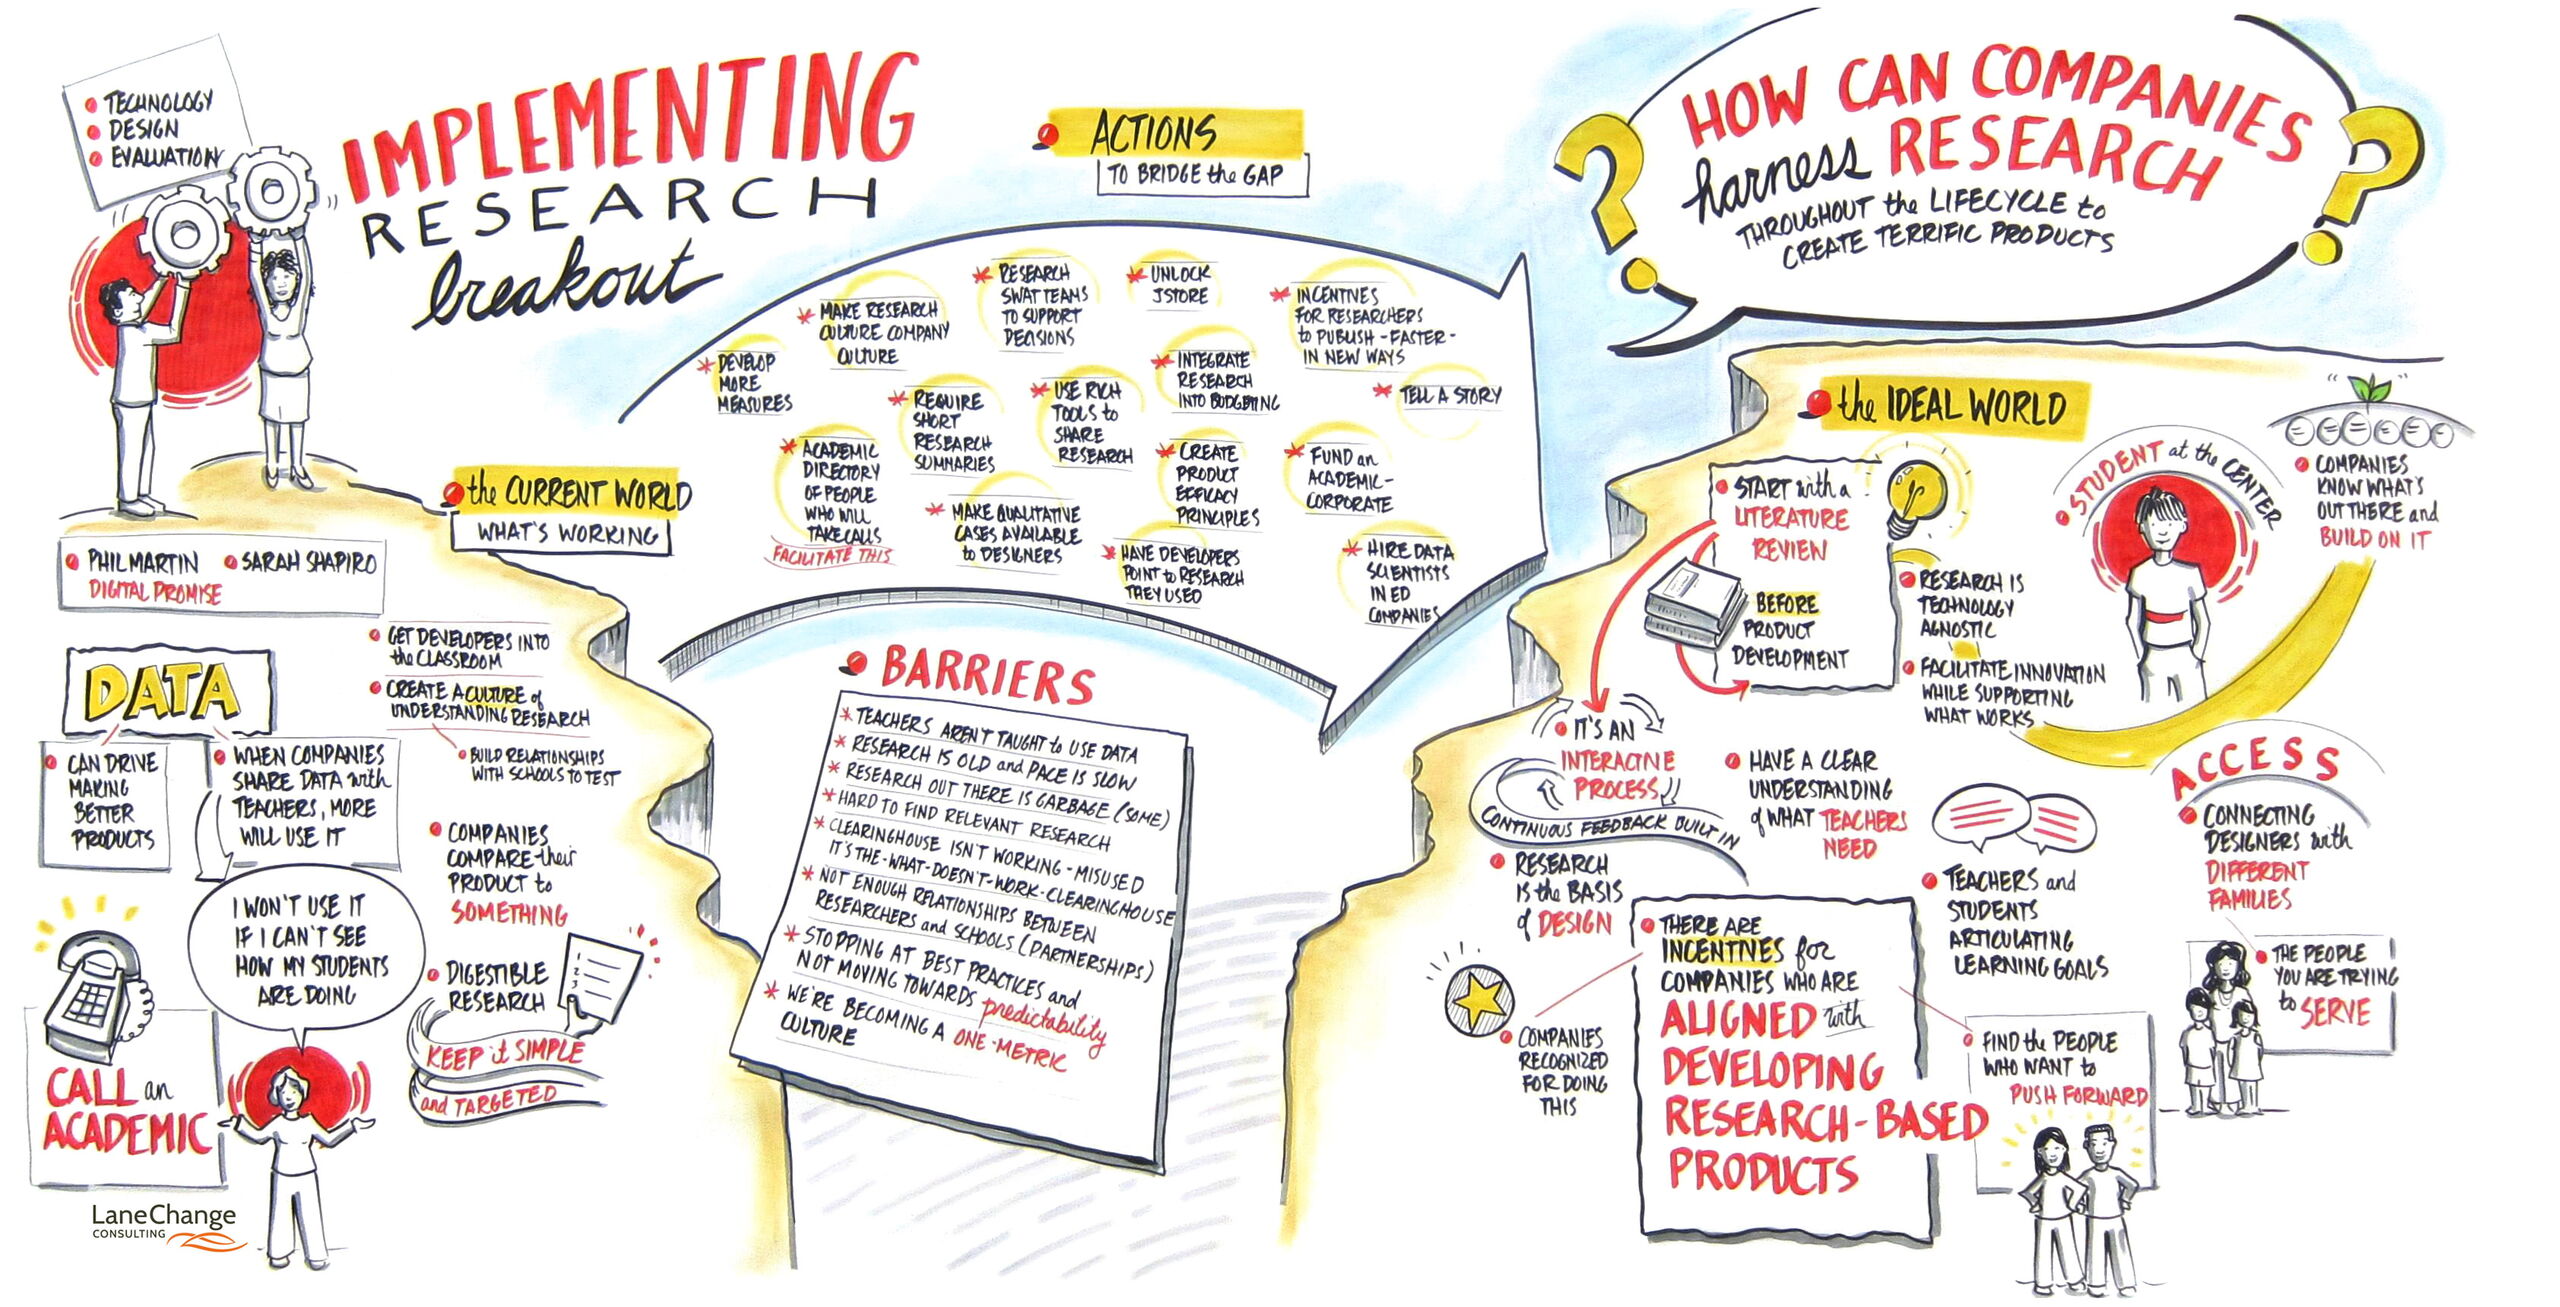 TECHNOLOGY
DESIGN
EVALUATION
IMPLEMENTING
RESEARCH
breakout
PHIL MARTIN
SARAH SHAPIRO
DIGITAL PROMISE
the CURRENT WORLD
WHAT'S WORKING
DATA
CAN DRIVE
MAKING
BETTER
PRODUCTS
WHEN COMPANIES
SHARE DATA with
TEACHERS, MORE
WILL USE IT
I WON'T USE IT
IF I CAN'T SEE
HOW MY STUDENTS
ARE DOING
CALL an
ACADEMIC
GET DEVELOPERS INTO
the CLASSROOM
CREATE A CULTURE of
UNDERSTANDING RESEARCH
BUILD RELATIONSHIPS
WITH SCHOOLS TO TEST
COMPANIES
COMPARE their
PRODUCT to
SOMETHING
DIGESTIBLE
RESEARCH
1
2
3
KEEP it SIMPLE
and TARGETED
LaneChange
CONSULTING
ACTIONS
TO BRIDGE the GAP
DEVELOP
MORE
MEASURES
MAKE RESEARCH
CULTURE COMPANY
CULTURE
RESEARCH
SWAT TEAMS
TO SUPPORT
DECISIONS
UNLOCK
JSTORE
INCENTIVES
FOR RESEARCHERS
to PUBLISH - FASTER -
IN NEW WAYS
ACADEMIC
DIRECTORY
OF PEOPLE
WHO WILL
TAKE CALLS
FACILITATE THIS
REQUIRE
SHORT
RESEARCH
SUMMARIES
USE RICH
TOOLS to
SHARE
RESEARCH
INTEGRATE
RESEARCH
INTO BUDGETING
TELL A STORY
MAKE QUALITATIVE
CASES AVAILABLE
to DESIGNERS
CREATE
PRODUCT
EFFICACY
PRINCIPLES
FUND an
ACADEMIC-
CORPORATE
HAVE DEVELOPERS
POINT to RESEARCH
THEY USED
HIRE DATA
SCIENTISTS
IN ED
COMPANIES
BARRIERS
TEACHERS AREN'T TAUGHT to USE DATA
RESEARCH IS OLD and PACE IS SLOW
RESEARCH OUT THERE IS GARBAGE (SOME)
HARD TO FIND RELEVANT RESEARCH
CLEARINGHOUSE ISN'T WORKING - MISUSED
IT'S THE-WHAT-DOESN'T-WORK-CLEARINGHOUSE
NOT ENOUGH RELATIONSHIPS BETWEEN
RESEARCHERS and SCHOOLS (PARTNERSHIPS)
STOPPING AT BEST PRACTICES and
NOT MOVING TOWARDS predictability
WE'RE BECOMING A ONE-METRIC
CULTURE
HOW CAN COMPANIES
harness RESEARCH
THROUGHOUT the LIFECYCLE to
CREATE TERRIFIC PRODUCTS
? ?
the IDEAL WORLD
START with a
LITERATURE
REVIEW
BEFORE
PRODUCT
DEVELOPMENT
RESEARCH IS
TECHNOLOGY
AGNOSTIC
FACILITATE INNOVATION
WHILE SUPPORTING
WHAT WORKS
STUDENT at the CENTER
COMPANIES
KNOW WHAT'S
OUT THERE and
BUILD ON IT
IT'S AN
INTERACTIVE
PROCESS
CONTINUOUS FEEDBACK BUILT IN
RESEARCH
IS the BASIS
of DESIGN
HAVE A CLEAR
UNDERSTANDING
of WHAT TEACHERS
NEED
TEACHERS and
STUDENTS
ARTICULATING
LEARNING GOALS
ACCESS
CONNECTING
DESIGNERS with
DIFFERENT
FAMILIES
THE PEOPLE
YOU ARE TRYING
to SERVE
THERE ARE
INCENTIVES for
COMPANIES WHO ARE
ALIGNED with
DEVELOPING
RESEARCH-BASED
PRODUCTS
COMPANIES
RECOGNIZED
FOR DOING
THIS
FIND the PEOPLE
WHO WANT to
PUSH FORWARD